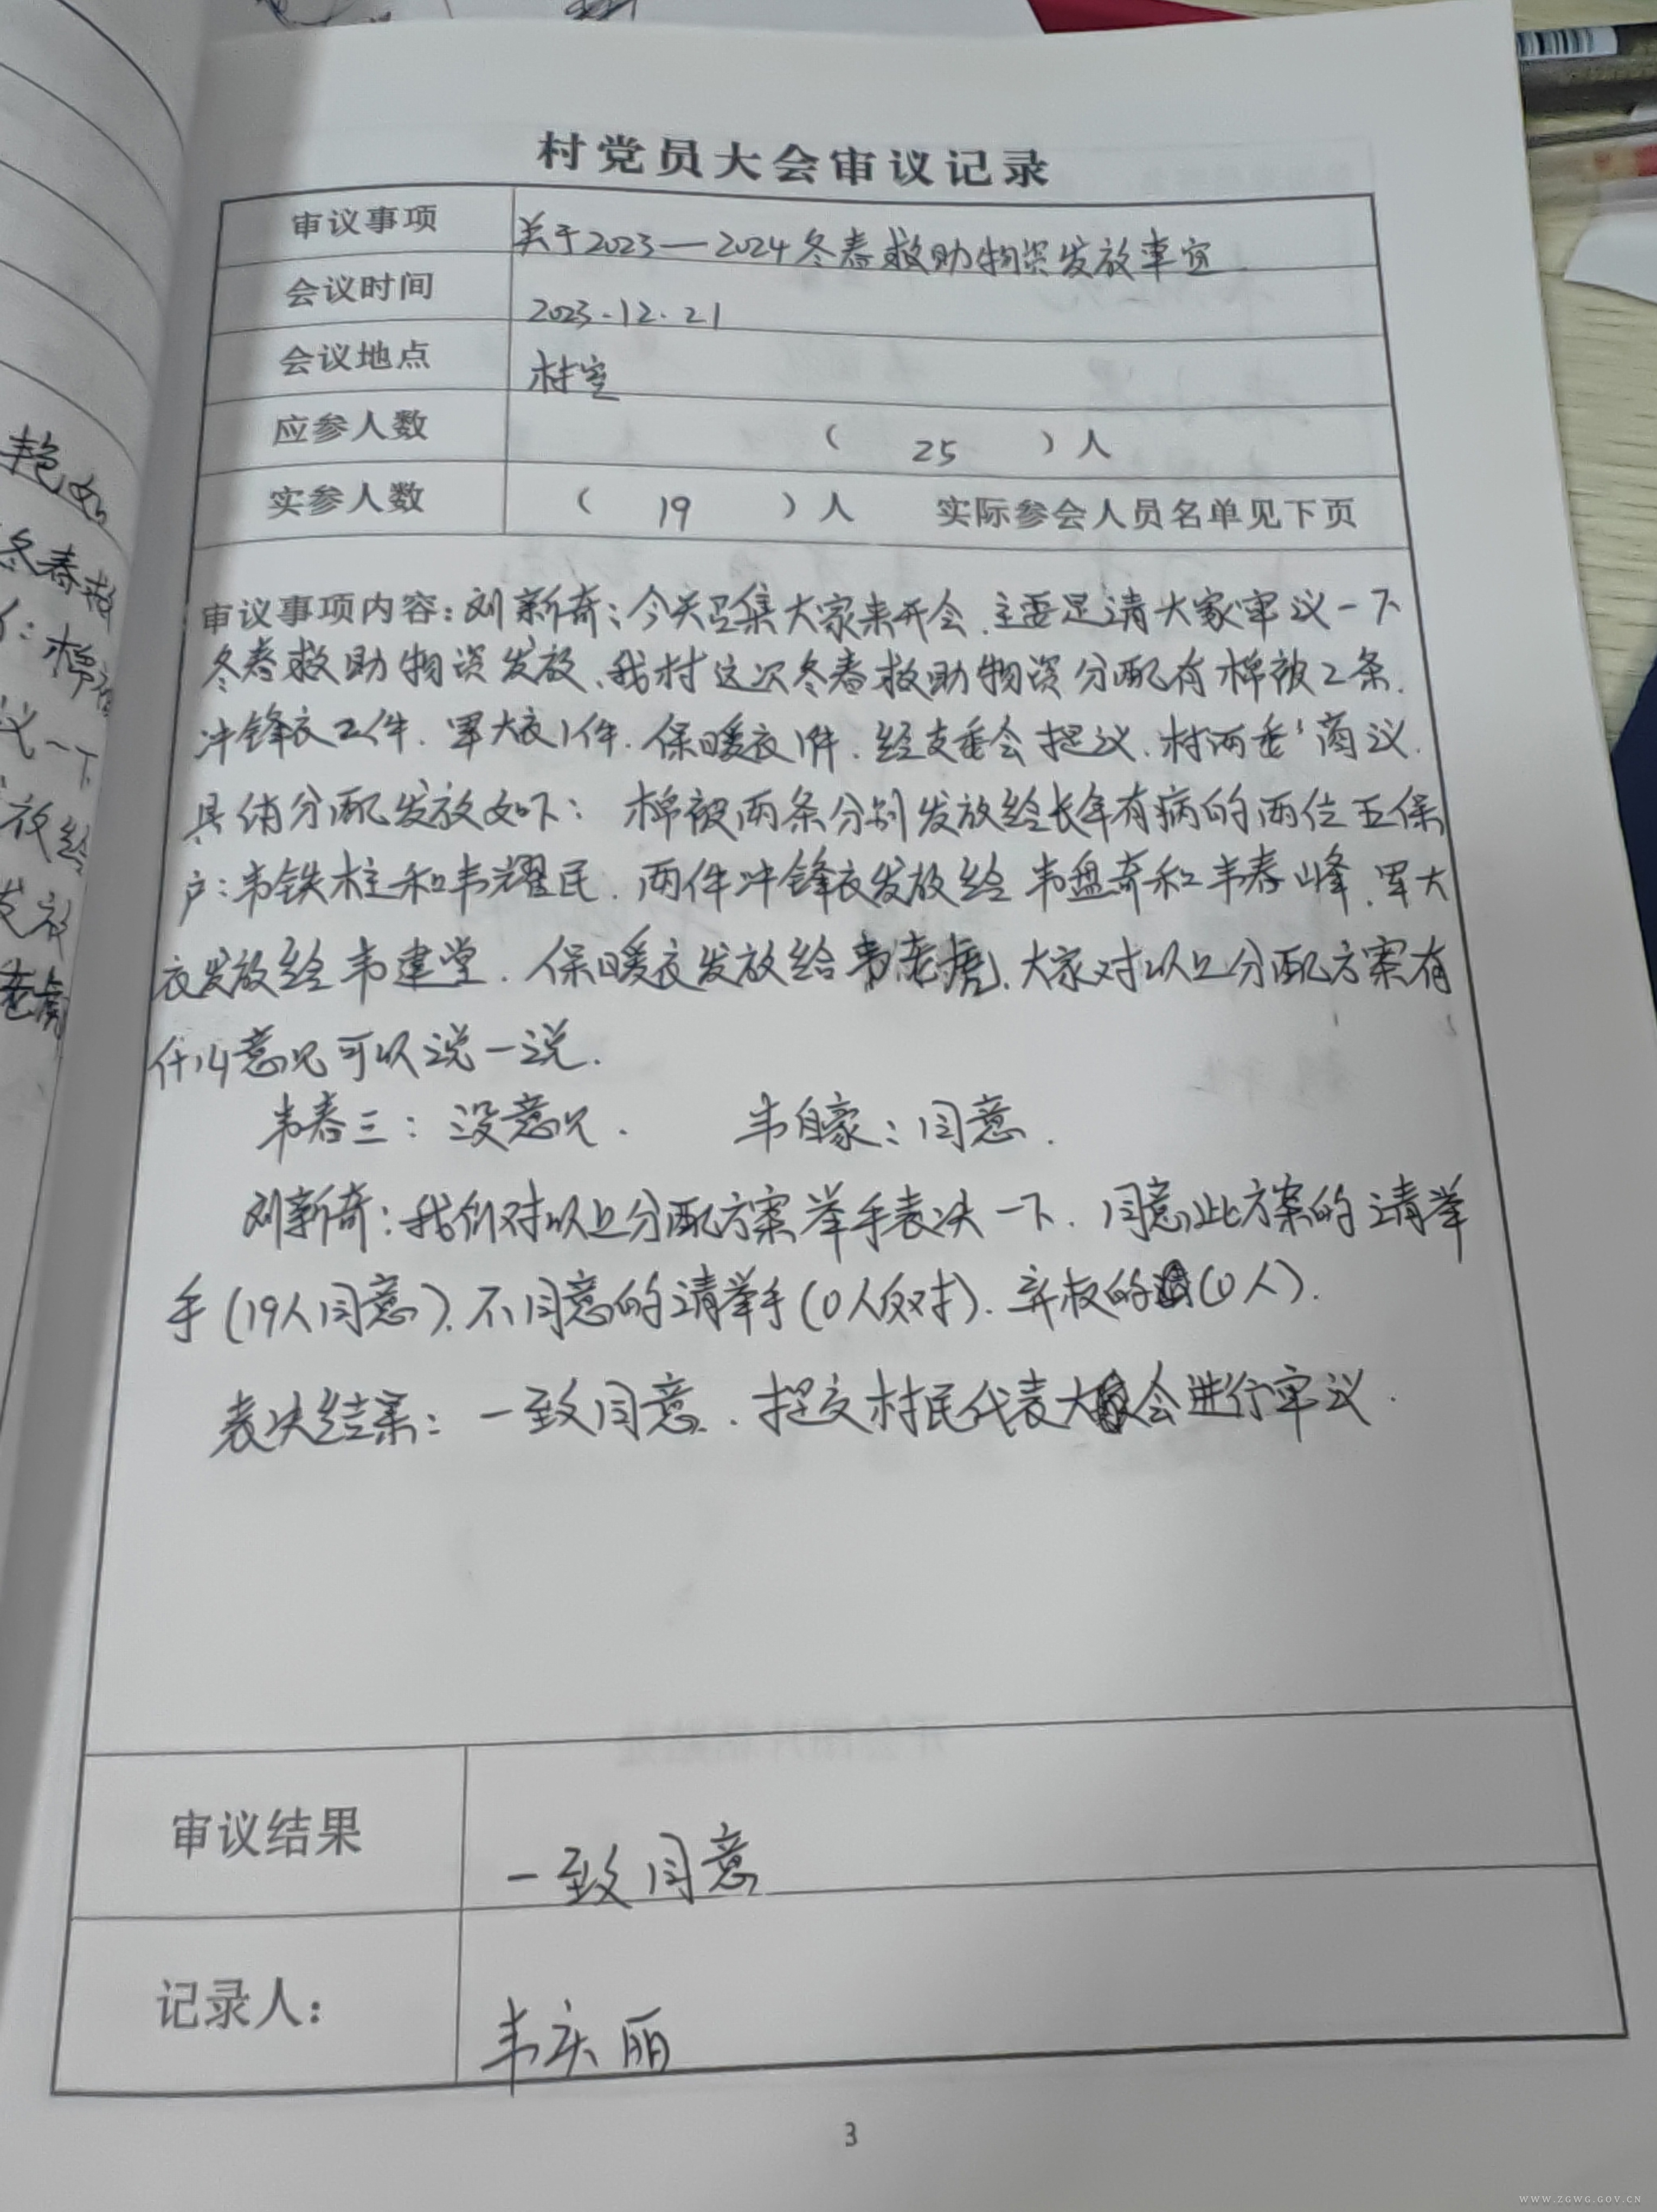 村党员大会审议记录
审议事项 关于2023—2024冬春救助物资发放事宜.
会议时间 2023.12.21
会议地点 村室
应参人数 ( 25 )人
实参人数 ( 19 )人 实际参会人员名单见下页
审议事项内容:刘新奇:今天召集大家来开会.主要是请大家审议一下
冬春救助物资发放、我村这次冬春救助物资分配有棉被2条.
冲锋衣2件.军大衣1件.保暖衣1件.经支委会提议.村两委商议.
具体分配发放如下: 棉被两条分别发放给长年有病的两位五保
户:韦铁柱和韦耀民.两件冲锋衣发放给韦盘奇和韦春峰.军大
衣发放给韦建堂.保暖衣发放给韦老虎.大家对以上分配方案有
什么意见可以说一说.
韦春三:没意见. 韦自豪:同意.
刘新奇:我们对以上分配方案举手表决一下.同意此方案的请举
手(19人同意).不同意的请举手(0人反对).弃权的(0人).
表决结果:一致同意.提交村民代表大会进行审议.
审议结果 一致同意
记录人: 韦庆丽
3
艳如
冬春救
棉被
议一下
放给
发放
老虎
WWW.ZGWG.GOV.CN